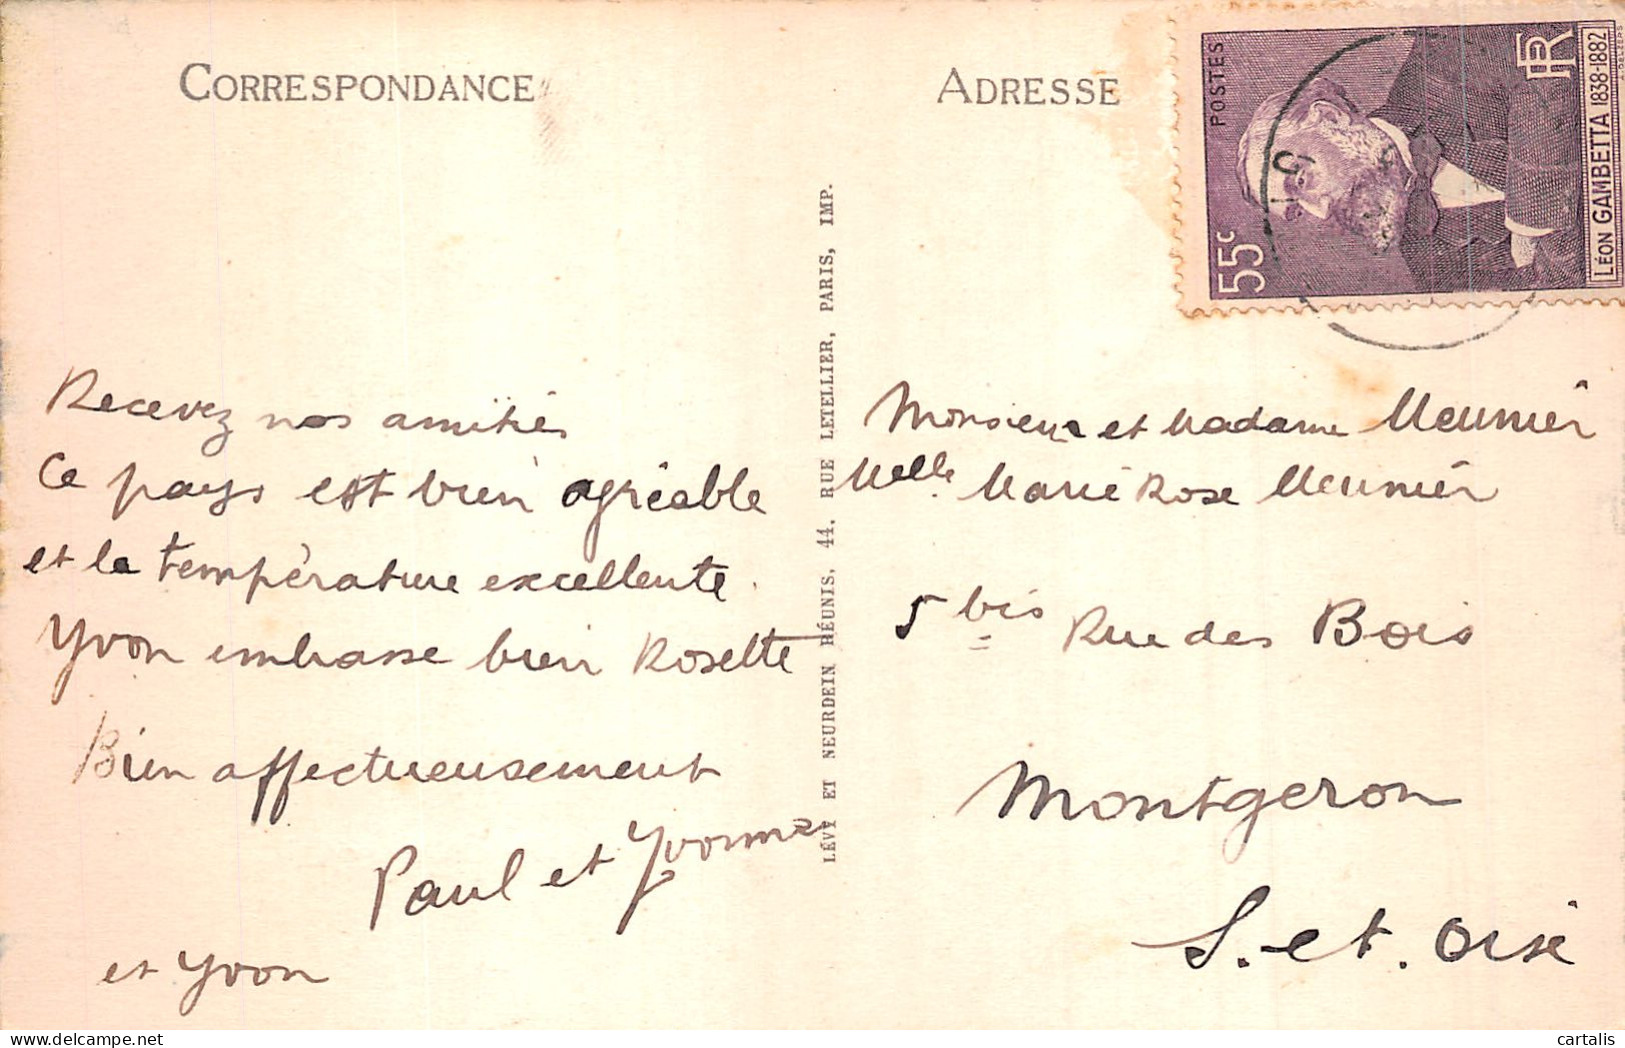 CORRESPONDANCE
Recevez nos amitiés
Ce pays est bien agréable
et la température excellente.
Yvon embrasse bien Rosette
Bien affectueusement
Paul et Yvonne
et Yvon
LÉVY ET NEURDEIN RÉUNIS, 44, RUE LETELLIER, PARIS, IMP.
ADRESSE
POSTES
55c
RF
LÉON GAMBETTA 1838-1882
Monsieur et Madame Meunier
Melle Marie Rose Meunier
5 bis Rue des Bois
Montgeron
S. et. Oise
cartalis